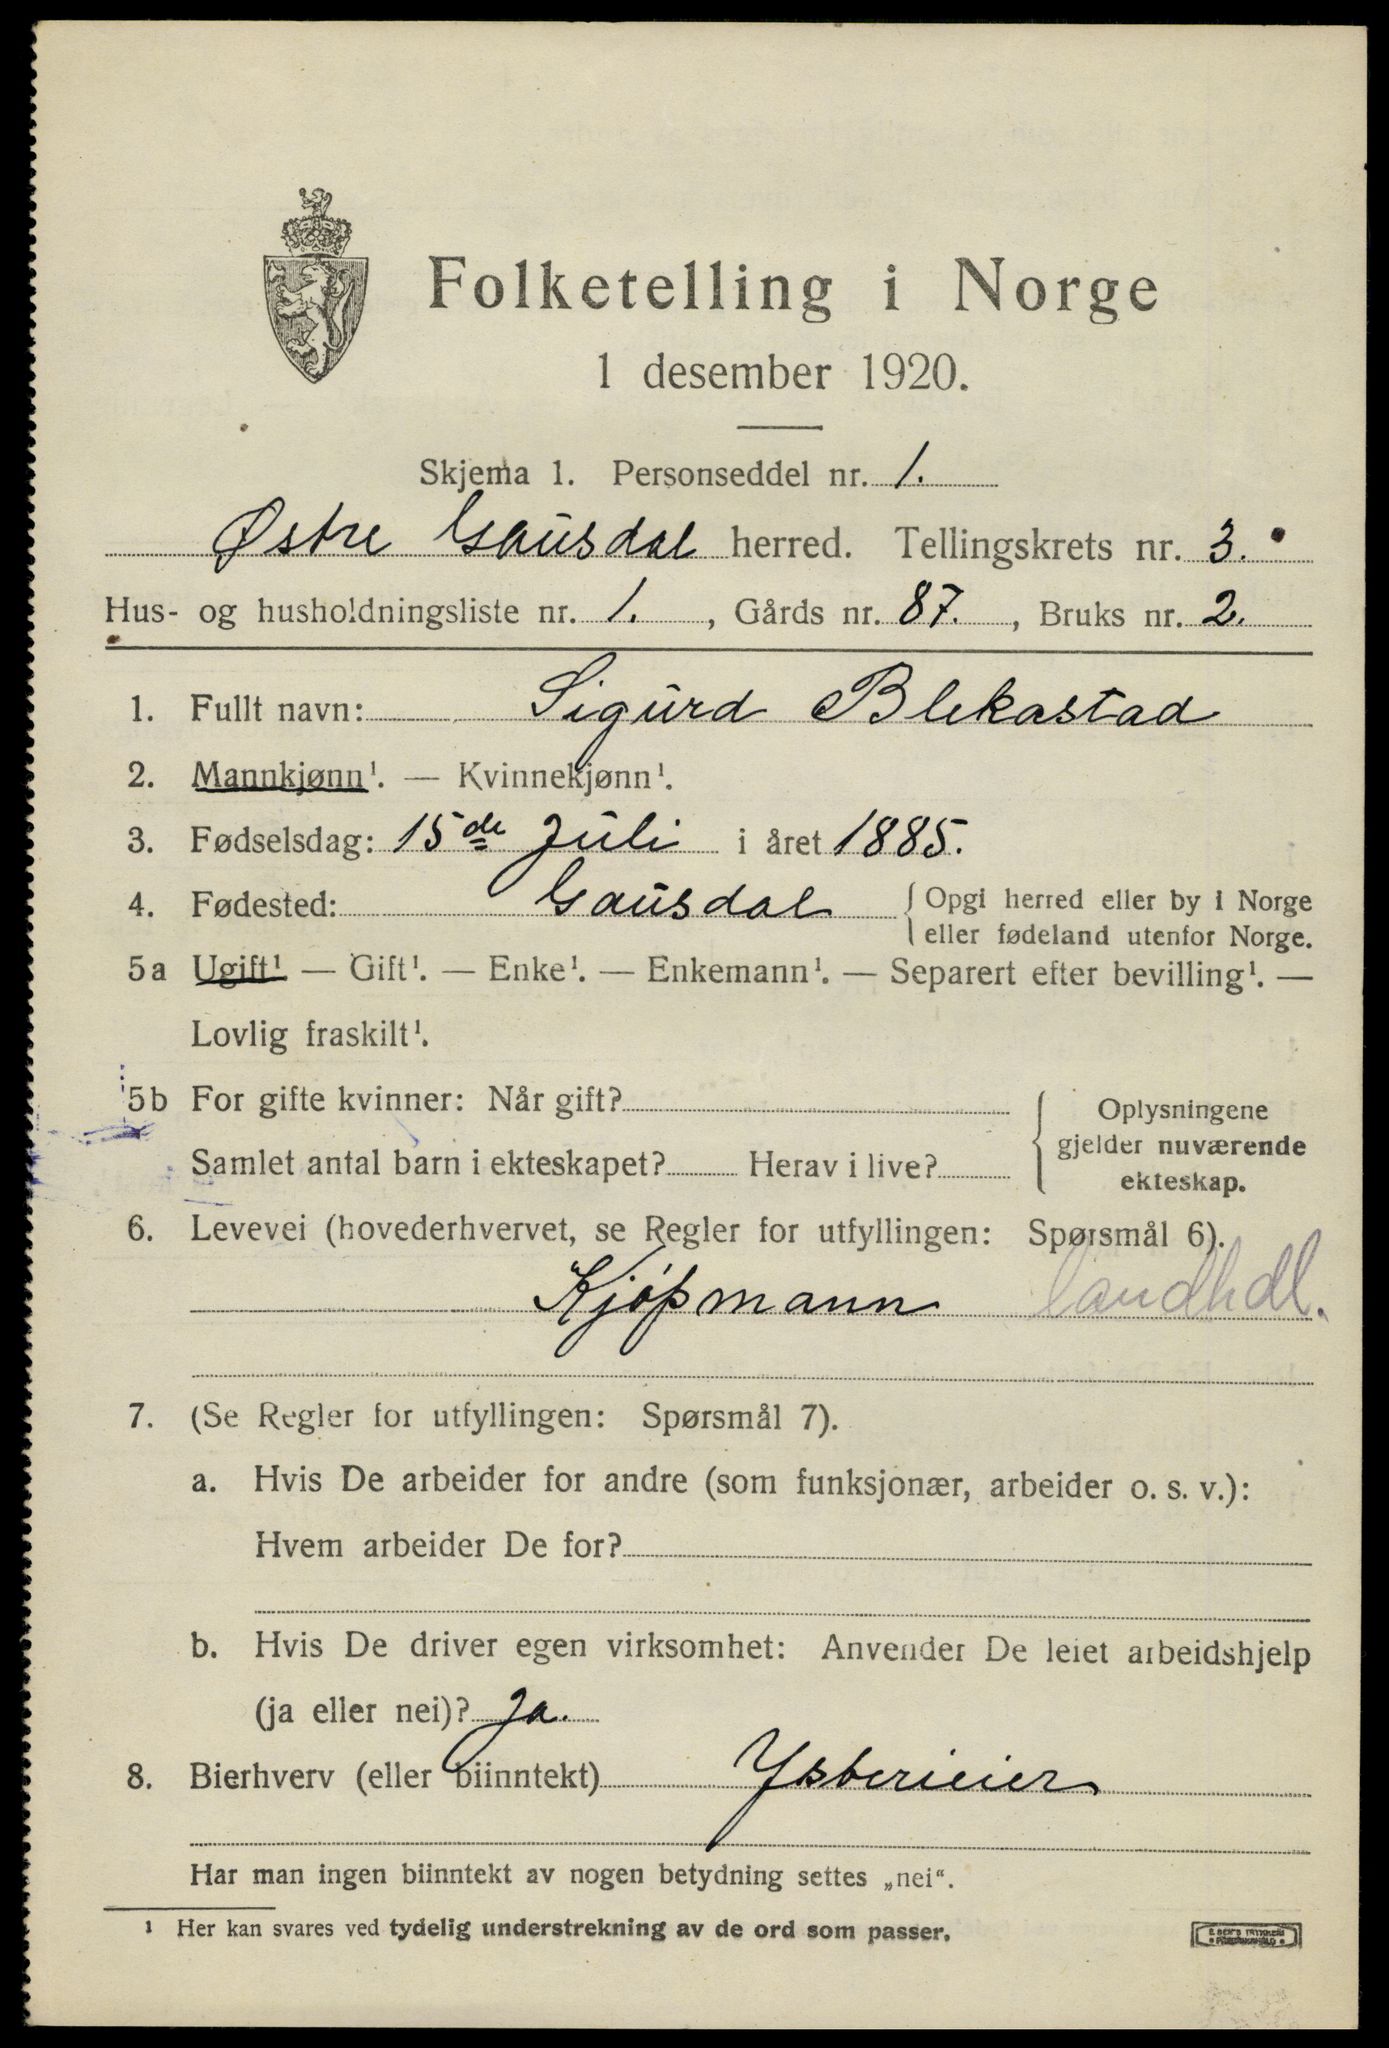 Folketelling i Norge
1 desember 1920.
Skjema 1. Personseddel nr. 1.
Østre Gausdal herred. Tellingskrets nr. 3.
Hus- og husholdningsliste nr. 1. , Gårds nr. 87. , Bruks nr. 2.
1. Fullt navn: Sigurd Blekastad
2. Mannkjønn¹. — Kvinnekjønn¹.
3. Fødselsdag: 15de Juli i året 1885.
4. Fødested: Gausdal { Opgi herred eller by i Norge
eller fødeland utenfor Norge.
5a Ugift¹ — Gift¹. — Enke¹. — Enkemann¹. — Separert efter bevilling¹. —
Lovlig fraskilt¹.
5b For gifte kvinner: Når gift?
Samlet antal barn i ekteskapet? Herav i live?
{ Oplysningene
gjelder nuværende
ekteskap.
6. Levevei (hovederhvervet, se Regler for utfyllingen: Spørsmål 6).
Kjøpmann landhdl.
7. (Se Regler for utfyllingen: Spørsmål 7).
a. Hvis De arbeider for andre (som funksjonær, arbeider o. s. v.):
Hvem arbeider De for?
b. Hvis De driver egen virksomhet: Anvender De leiet arbeidshjelp
(ja eller nei)? Ja.
8. Bierhverv (eller biinntekt) Ysterieier
Har man ingen biinntekt av nogen betydning settes „nei“.
¹ Her kan svares ved tydelig understrekning av de ord som passer.